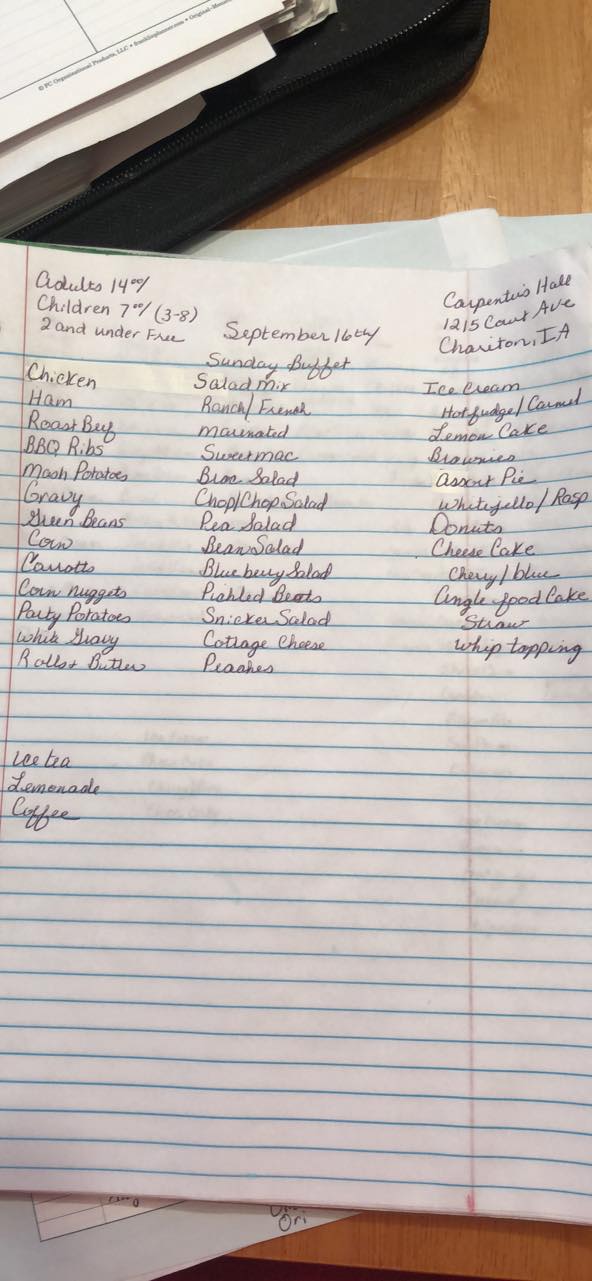 © FC Organizational Products, LLC • franklinplanner.com • Original-
Adults 14⁰⁰/
Children 7⁰⁰/ (3-8)
2 and under Free
September 16th/
Sunday Buffet
Carpenter's Hall
1215 Court Ave
Chariton, IA
Chicken
Ham
Roast Beef
BBQ Ribs
Mash Potatoes
Gravy
Green Beans
Corn
Carrotts
Corn Nuggets
Party Potatoes
White Gravy
Rolls + Butter
Ice tea
Lemonade
Coffee
Salad Mix
Ranch/French
Marinated
Sweetmac
Broc Salad
Chop/Chop Salad
Pea Salad
Bean Salad
Blueberry Salad
Pickled Beats
Snicker Salad
Cottage Cheese
Peaches
Ice Cream
Hot fudge/Carmel
Lemon Cake
Brownies
Assort Pie
White jello/Rasp
Donuts
Cheese Cake
Cherry/blue
Angle food Cake
Straw
Whip topping
Ori